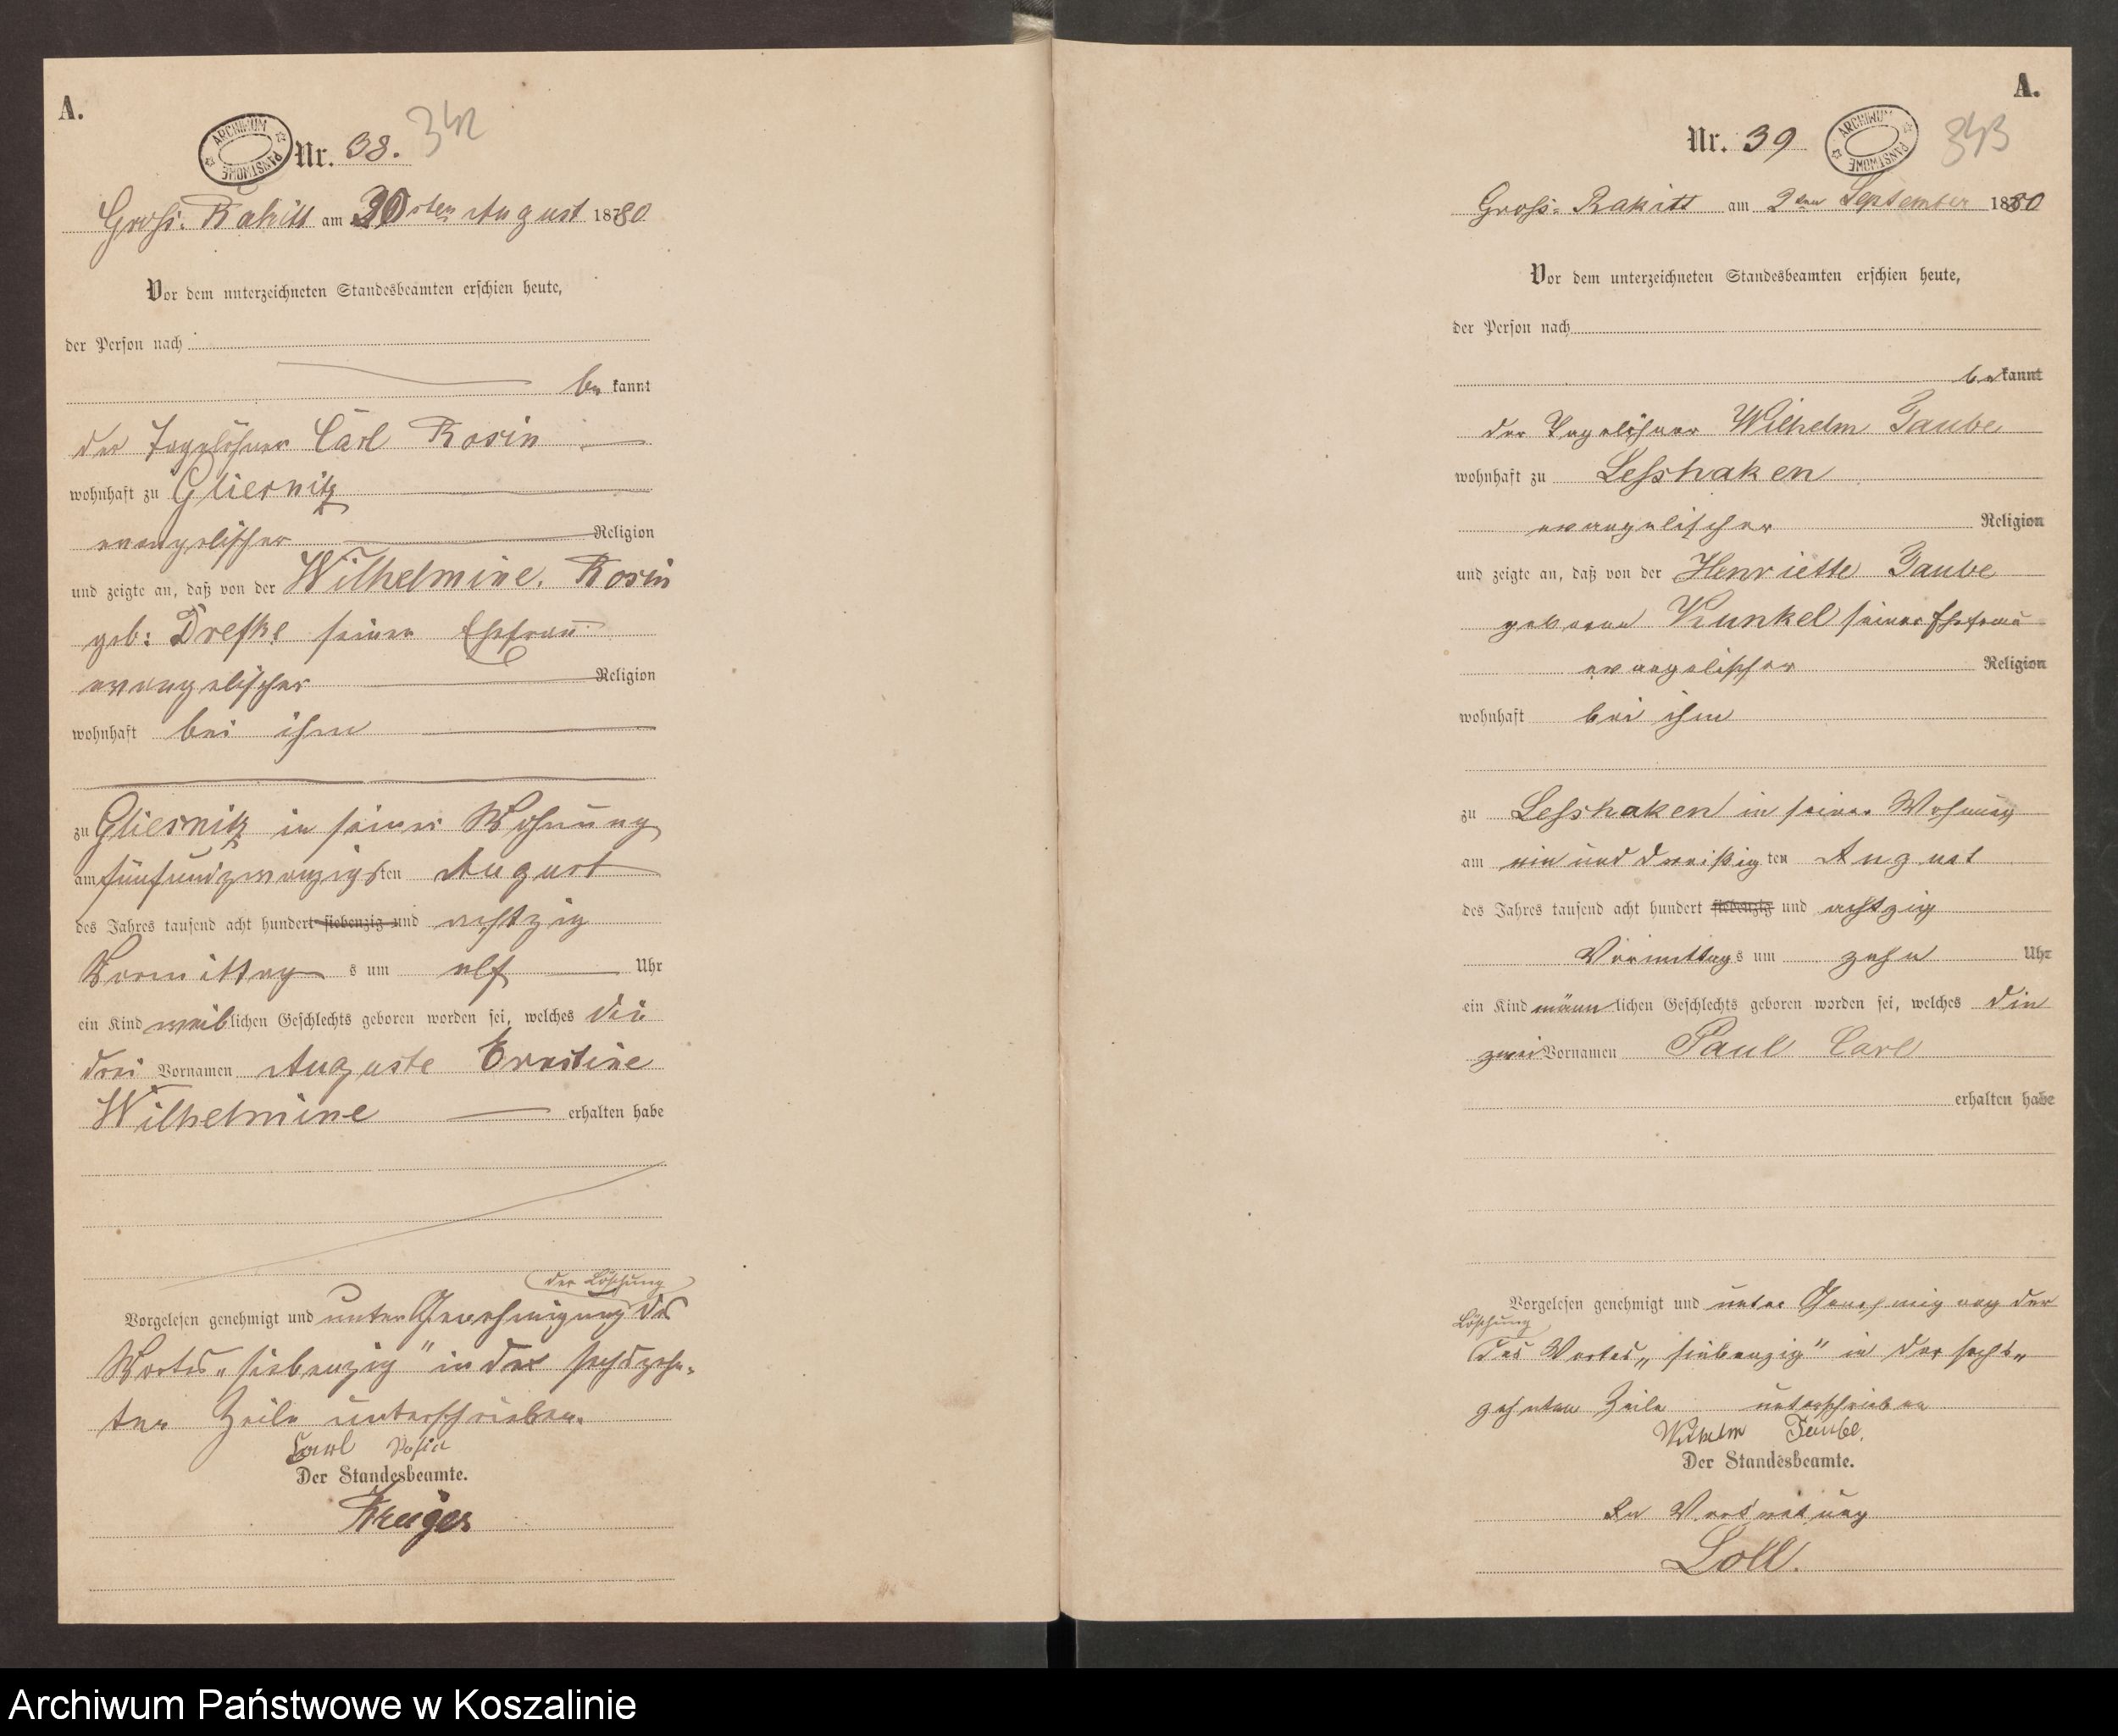 A.
ARCHIWUM PAŃSTWOWE
Nr. 38. 342
Groß: Rakitt am 30sten August 1880
Vor dem unterzeichneten Standesbeamten erschien heute,
der Person nach
be kannt
der Tagelöhner Carl Rosin
wohnhaft zu Gliesnitz
evangelischer Religion
und zeigte an, daß von der Wilhelmine Rosin
geb: Drefke seiner Ehefrau
evangelischer Religion
wohnhaft bei ihm
zu Gliesnitz in seiner Wohnung
am fünfundzwanzigsten August
des Jahres tausend acht hundert siebenzig und achtzig
Vormittag s um elf Uhr
ein Kind weiblichen Geschlechts geboren worden sei, welches die
drei Vornamen Auguste Ernstine
Wilhelmine erhalten habe
der Löschung
Vorgelesen genehmigt und unter Genehmigung des
Wortes „siebenzig" in der sechszehn-
ten Zeile unterschrieben.
Carl Rosin
Der Standesbeamte.
Krüger
A.
Nr. 39 343
ARCHIWUM PAŃSTWOWE
Gross: Rakitt am 2ten September 1880
Vor dem unterzeichneten Standesbeamten erschien heute,
der Person nach
be kannt
der Tagelöhner Wilhelm Taube
wohnhaft zu Lesshaken
evangelischer Religion
und zeigte an, daß von der Henriette Taube
geborene Kunkel seiner Ehefrau
evangelischer Religion
wohnhaft bei ihm
zu Lesshaken in seiner Wohnung
am ein und dreißigten August
des Jahres tausend acht hundert siebenzig und achtzig
Vormittags um zehn Uhr
ein Kind männlichen Geschlechts geboren worden sei, welches die
zwei Vornamen Paul Carl
erhalten habe
Vorgelesen genehmigt und unter Genehmigung der
Löschung
des Wortes „siebenzig" in der sechs-
zehnten Zeile unterschrieben
Wilhelm Taube.
Der Standesbeamte.
In Vertretung
Loll.
Archiwum Państwowe w Koszalinie